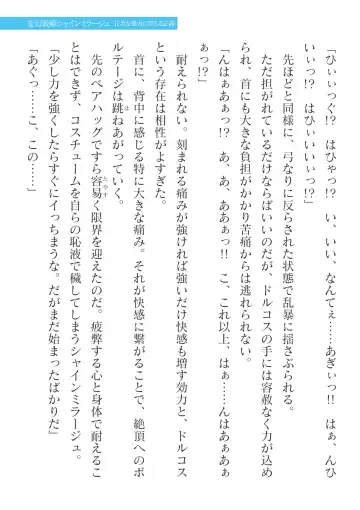 聖幻装姫シャインミラージュ
「ひぃぃっっぐ!? はひゃっ!? い、いい、なんてぇ……あぎぃっ!! はぁ、んひ
いぃっ!? はひぃいいぃっ!?」
先ほどと同様に、弓なりに反らされた状態で乱暴に揺さぶられる。
ただ担がれているだけならばいいのだが、ドルコスの手には容赦なく力が込め
られ、首にも大きな負担がかかり苦痛からは逃れられない。
「んはぁあぁっ!? あ、あ、ああぁっ!! こ、これ以上、はぁ……んはぁあぁぁ
ぁっ!?」
耐えられない。刻まれる痛みが強ければ強いだけ快感も増す効力と、ドルコス
という存在は相性がよすぎた。
首に、背中に感じる特に大きな痛み。それが快感に繋がることで、絶頂へのボ
ルテージは跳ねあがっていく。
先のベアハッグですら容易く限界を迎えたのだ。疲弊する心と身体で耐えるこ
とはできず、コスチュームを自らの恥液で穢してしまうシャインミラージュ。
「少し力を強くしたらすぐにイっちまうな。だがまだ始まったばかりだ」
「あぐっ……こ、この……」